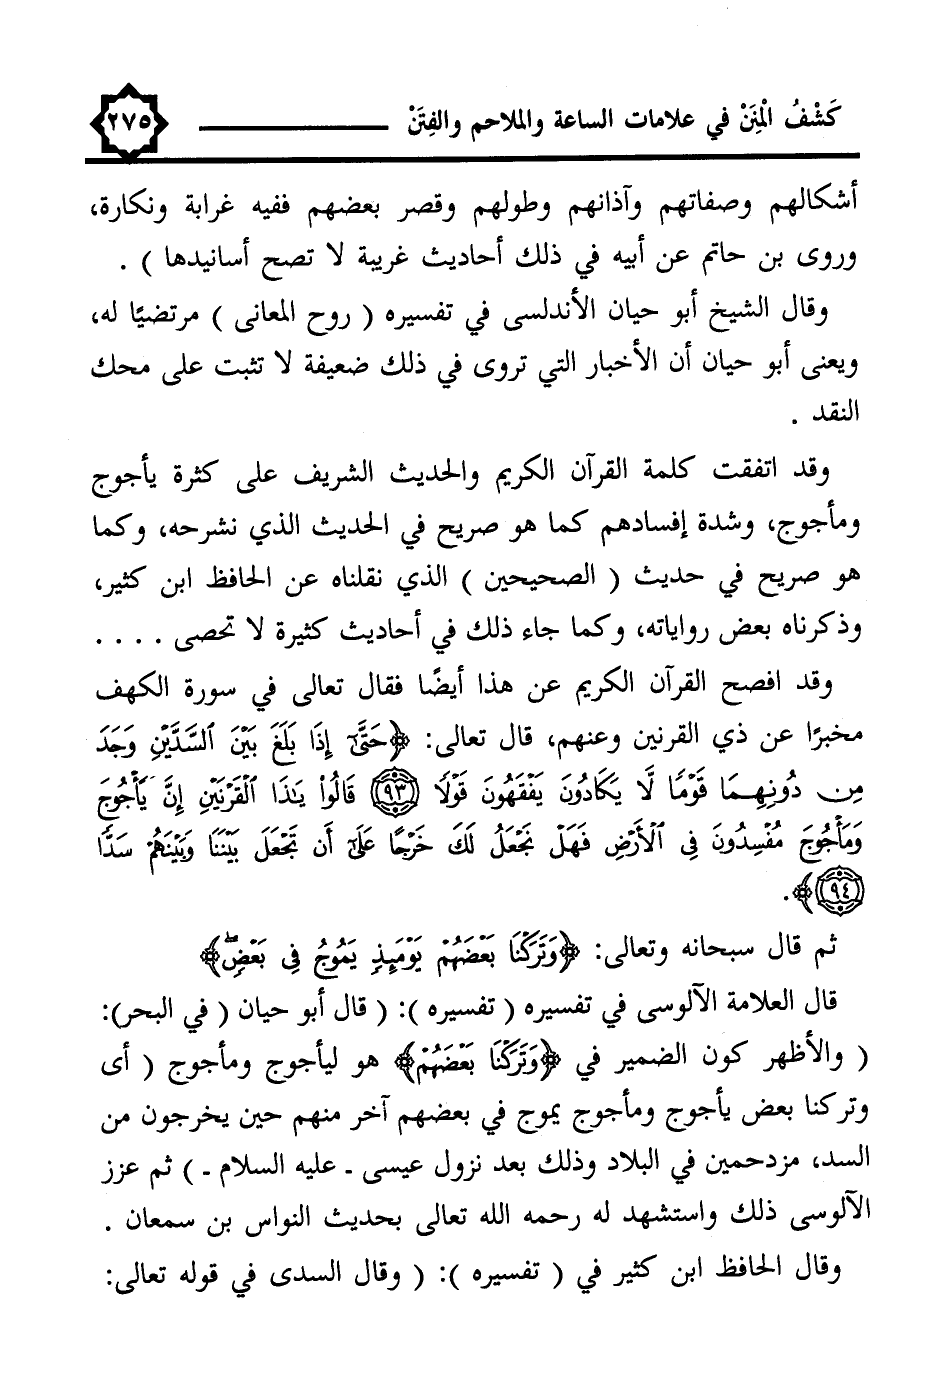 كَشْفُ الْمِنَنْ في علامات الساعة والملاحم والفِتَنْ ٢٧٥
أشكالهم وصفاتهم وآذانهم وطولهم وقصر بعضهم ففيه غرابة ونكارة،
وروى بن حاتم عن أبيه في ذلك أحاديث غريبة لا تصح أسانيدها ) .
وقال الشيخ أبو حيان الأندلسى في تفسيره ( روح المعانى ) مرتضيًا له،
ويعنى أبو حيان أن الأخبار التي تروى في ذلك ضعيفة لا تثبت على محك
النقد .
وقد اتفقت كلمة القرآن الكريم والحديث الشريف على كثرة يأجوج
ومأجوج، وشدة إفسادهم كما هو صريح في الحديث الذي نشرحه، وكما
هو صريح في حديث ( الصحيحين ) الذي نقلناه عن الحافظ ابن كثير،
وذكرناه بعض رواياته، وكما جاء ذلك في أحاديث كثيرة لا تحصى . . . .
وقد افصح القرآن الكريم عن هذا أيضًا فقال تعالى في سورة الكهف
مخبرًا عن ذي القرنين وعنهم، قال تعالى: ﴿حَتَّىٰٓ إِذَا بَلَغَ بَيْنَ ٱلسَّدَّيْنِ وَجَدَ
مِن دُونِهِمَا قَوْمًا لَّا يَكَادُونَ يَفْقَهُونَ قَوْلًا ٩٣ قَالُوا۟ يَٰذَا ٱلْقَرْنَيْنِ إِنَّ يَأْجُوجَ
وَمَأْجُوجَ مُفْسِدُونَ فِى ٱلْأَرْضِ فَهَلْ نَجْعَلُ لَكَ خَرْجًا عَلَىٰٓ أَن تَجْعَلَ بَيْنَنَا وَبَيْنَهُمْ سَدًّا
٩٤﴾.
ثم قال سبحانه وتعالى: ﴿وَتَرَكْنَا بَعْضَهُمْ يَوْمَئِذٍ يَمُوجُ فِى بَعْضٍۖ﴾
قال العلامة الآلوسى في تفسيره ( تفسيره ): ( قال أبو حيان ( في البحر):
( والأظهر كون الضمير في ﴿وَتَرَكْنَا بَعْضَهُمْ﴾ هو ليأجوج ومأجوج ( أى
وتركنا بعض يأجوج ومأجوج يموج في بعضهم آخر منهم حين يخرجون من
السد، مزدحمين في البلاد وذلك بعد نزول عيسى ـ عليه السلام ـ ) ثم عزز
الآلوسى ذلك واستشهد له رحمه الله تعالى بحديث النواس بن سمعان .
وقال الحافظ ابن كثير في ( تفسيره ): ( وقال السدى في قوله تعالى: